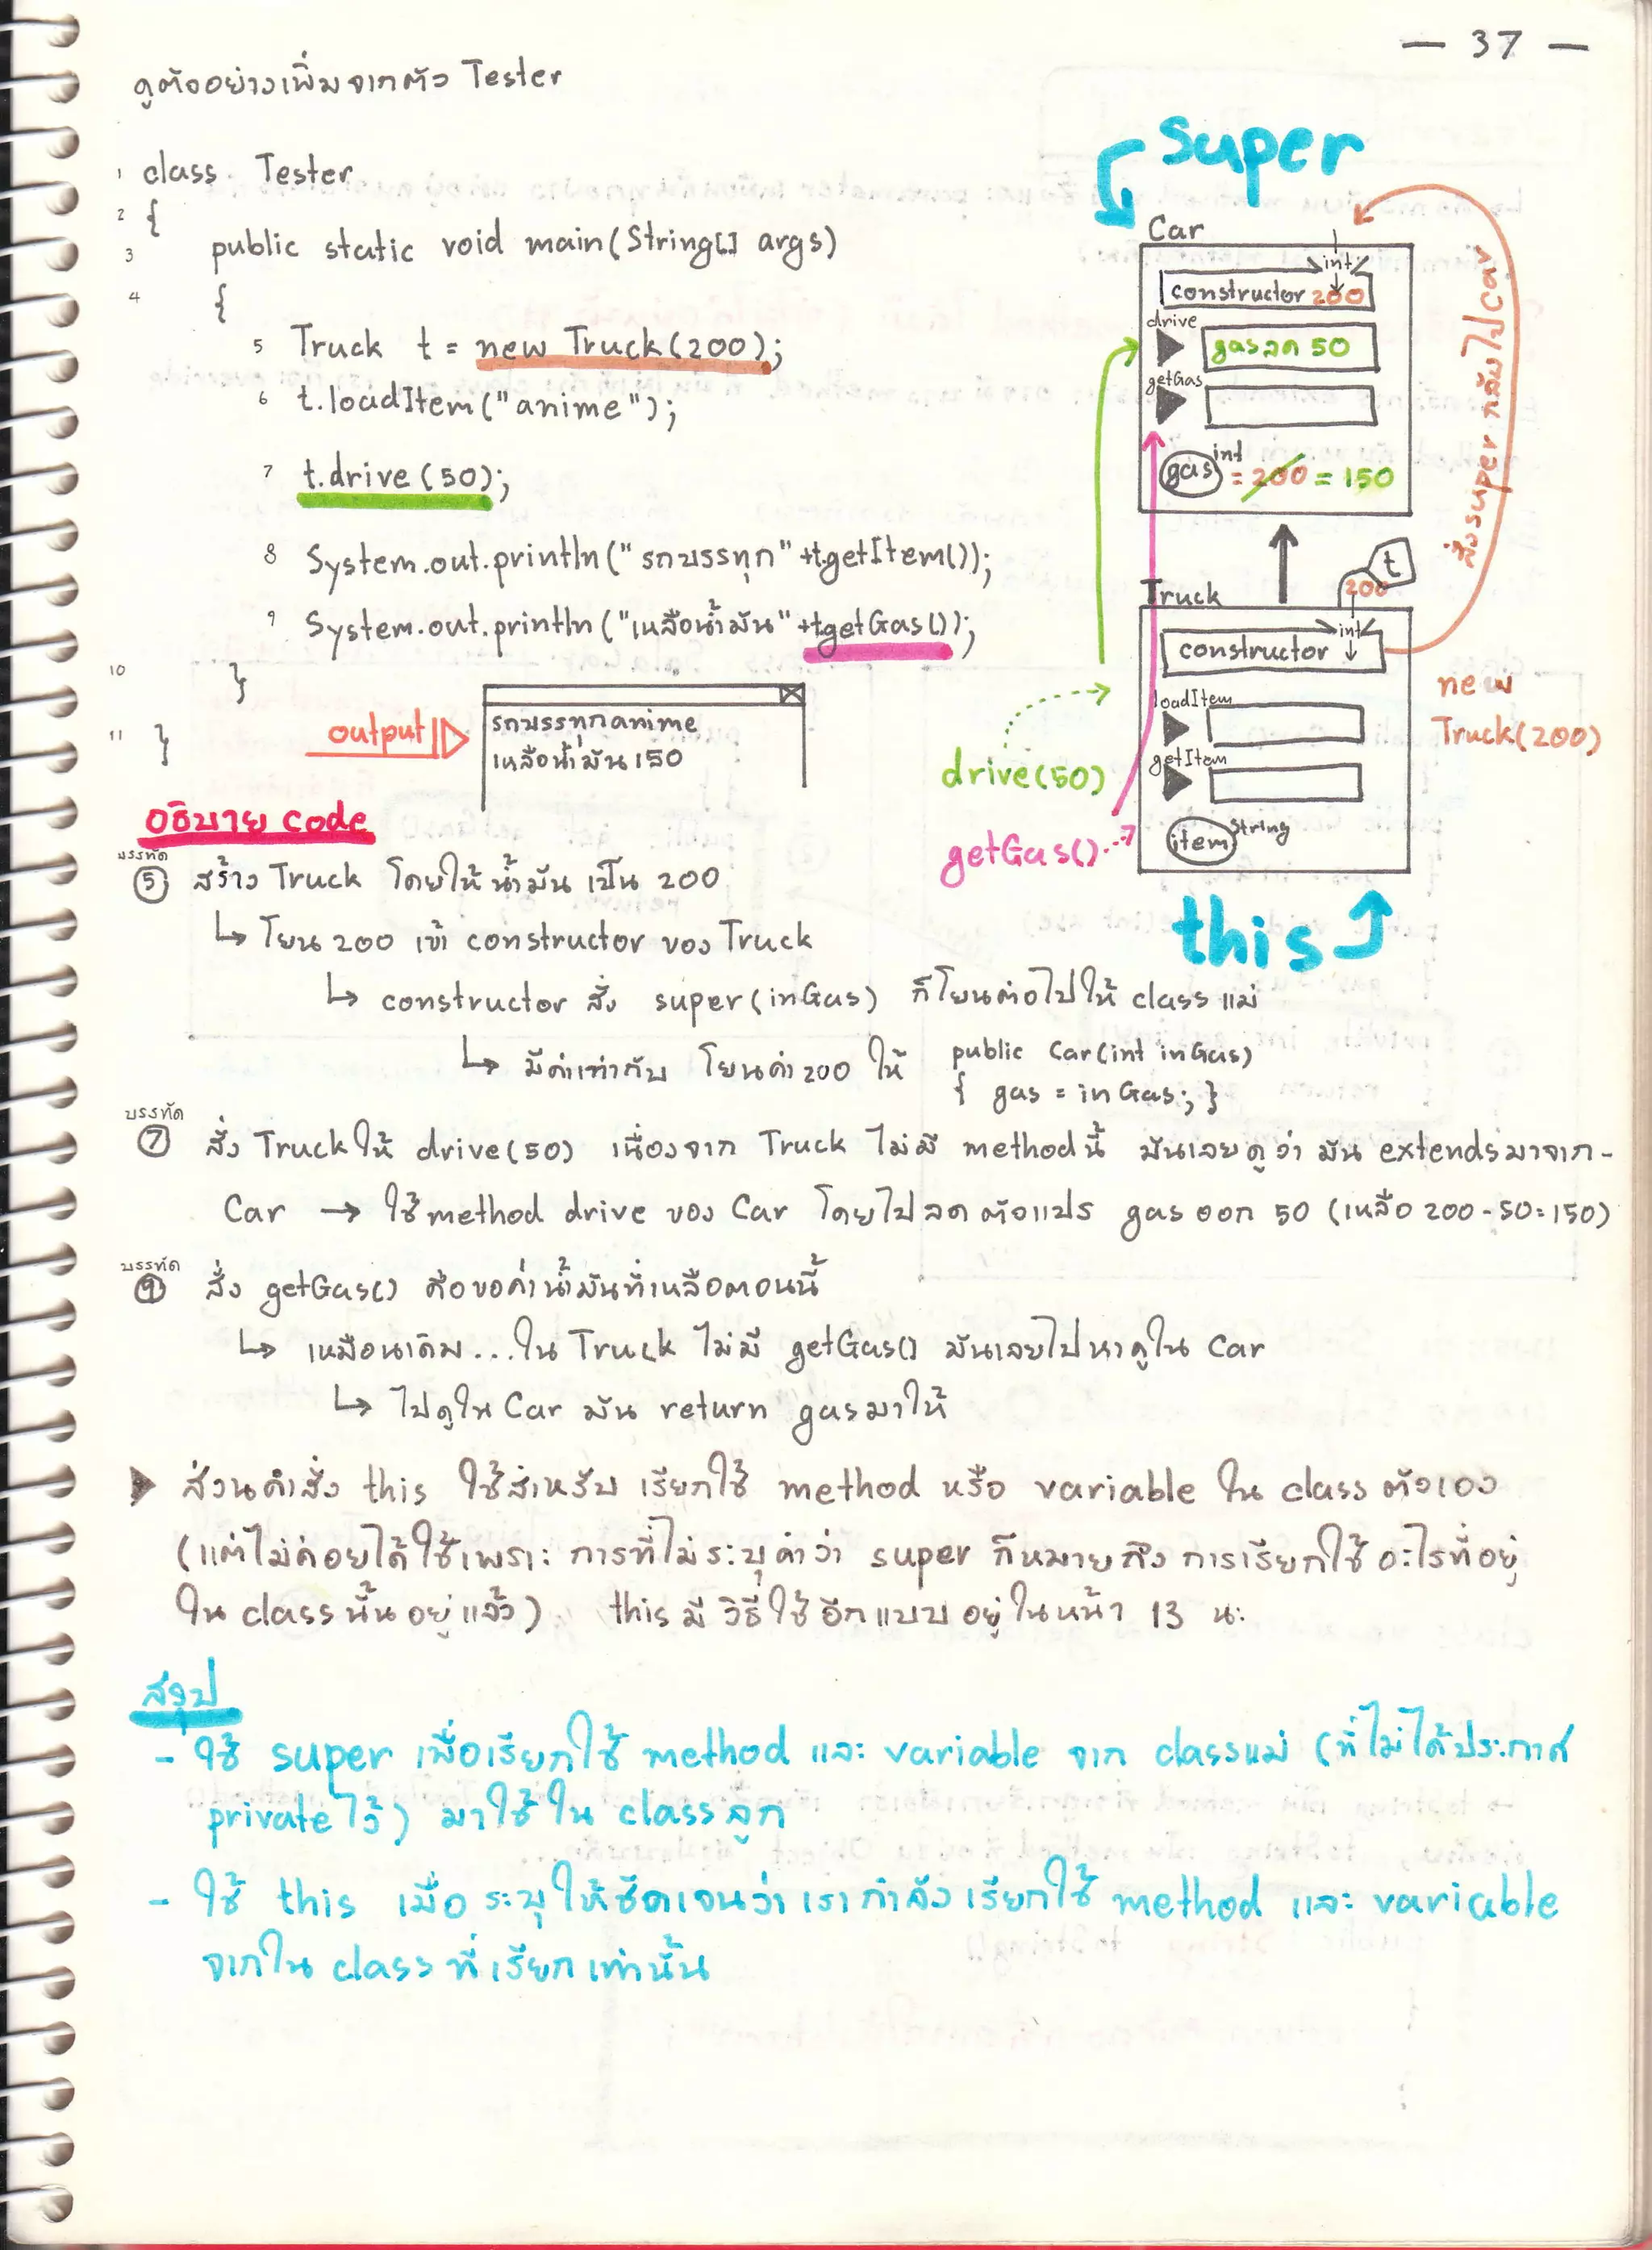 — 37 —
ดูตัวอย่างเพิ่มจากตัว Tester
1 class Tester
2 {
3 public static void main(String[] args)
4 {
5 Truck t = new Truck(200);
6 t.loadItem("anime");
7 t.drive(50);
8 System.out.println("รถบรรทุก"+t.getItem());
9 System.out.println("เหลือน้ำมัน"+t.getGas());
10 }
11 }
output
รถบรรทุกanime
เหลือน้ำมัน150
super
Car
int
constructor 200
drive
gasลด 50
getGas
int
gas = 200 = 150
สั่งsuper กลับไปCar
t
200
Truck
int
constructor
new
Truck(200)
loadItem
getItem
item String
drive(50)
getGas()
this
อธิบาย code
บรรทัด
5 สร้าง Truck โดยให้น้ำมัน เป็น 200
↳ โยน 200 เข้า constructor ของ Truck
↳ constructor สั่ง super(inGas) ก็โยนต่อไปให้ class แม่
↳ มีค่าเท่ากับ โยนค่า200 ให้ public Car(int inGas)
{ gas = inGas; }
บรรทัด
7 สั่ง Truckให้ drive(50) เนื่องจาก Truck ไม่มี method นี้ มันเลยดูว่า มัน extendsมาจาก-
Car → ใช้method drive ของ Car โดยไปลดตัวแปร gas ออก 50 (เหลือ 200-50=150)
บรรทัด
9 สั่ง getGas() คือขอค่าน้ำมันที่เหลือตอนนี้
↳ เหมือนเดิม...ใน Truck ไม่มี getGas() มันเลยไปหาดูใน Car
↳ ไปดูใน Car มัน return gasมาให้
▶ ส่วนคำสั่ง this ใช้สำหรับ เรียกใช้ method หรือ variable ใน class ตัวเอง
(แต่ไม่ค่อยได้ใช้เพราะ การที่ไม่ระบุคำว่า super ก็หมายถึง การเรียกใช้ อะไรที่อยู่
ใน classนั้นอยู่แล้ว) thisมีวิธีใช้อีกแบบอยู่ในหน้า 13 นะ
สรุป
- ใช้ super เพื่อเรียกใช้ method และ variable จาก classแม่ (ที่ไม่ได้ประกาศ
privateไว้) มาใช้ใน classลูก
- ใช้ this เมื่อ ระบุให้ชัดเจนว่า เรากำลังเรียกใช้ method และ variable
จากใน class ที่เรียกเท่านั้น